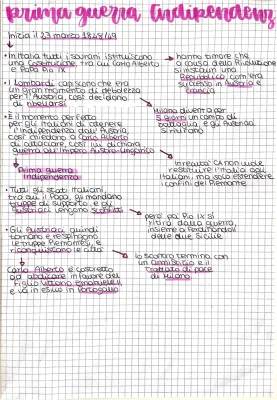 prima guerra indipendenz
Inizia il 23 marzo 1848/49
• In Italia tutti i sovrani istituiscono
una Costituzione, tra cui Carlo Alberto
e Papa Pio IX
hanno timore che
a causa della Rivoluzione
si instauri una
Repubblica, com'era
successo in Austria e
Francia
• I Lombardi capiscono che era
un gran momento di debolezza
per l'Austria così decidono
di ribellarsi
Milano diventa per
5 giorni un campo di
battaglia e gli Austriaci
si ritirano
• È il momento perfetto
per gli Italiani di ottenere
l'indipendenza dall'Austria.
Così chiedono a Carlo Alberto
di attaccare, così lui dichiara
guerra all'Impero Austro-Ungarico
Prima guerra
Indipendenza
In realtà CA non vuole
restituire l'Italia agli
Italiani, ma solo estendere
i confini del Piemonte
• Tutti gli stati italiani,
tra cui il Papa, gli mandano
truppe di supporto e gli
Austriaci vengono sconfitti
però papa Pio IX si
ritira dalla guerra,
insieme a Ferdinando II
delle due Sicilie
• Gli Austriaci quindi
tornano e respingono
le truppe Piemontesi, e
riconquistano le città
lo scontro termina con
un armistizio e il
trattato di pace
di Milano
Carlo Alberto è costretto
ad abdicare in favore del
figlio Vittorio Emanuele II
e va in esilio in Portogallo